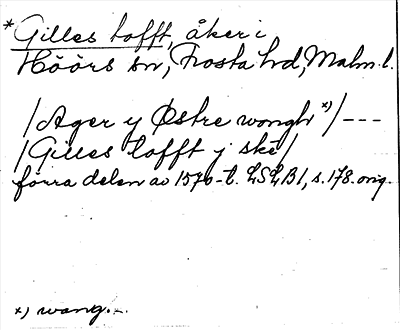 * Gilles tofft, åker i
Höörs sn, Frosta hd, Malm. l.
/Ager y Østre wongh x)/ ---
/Gilles tofft j ske/
förra delen av 1570-t. LSLB1, s. 178. orig.
x) wang.-.